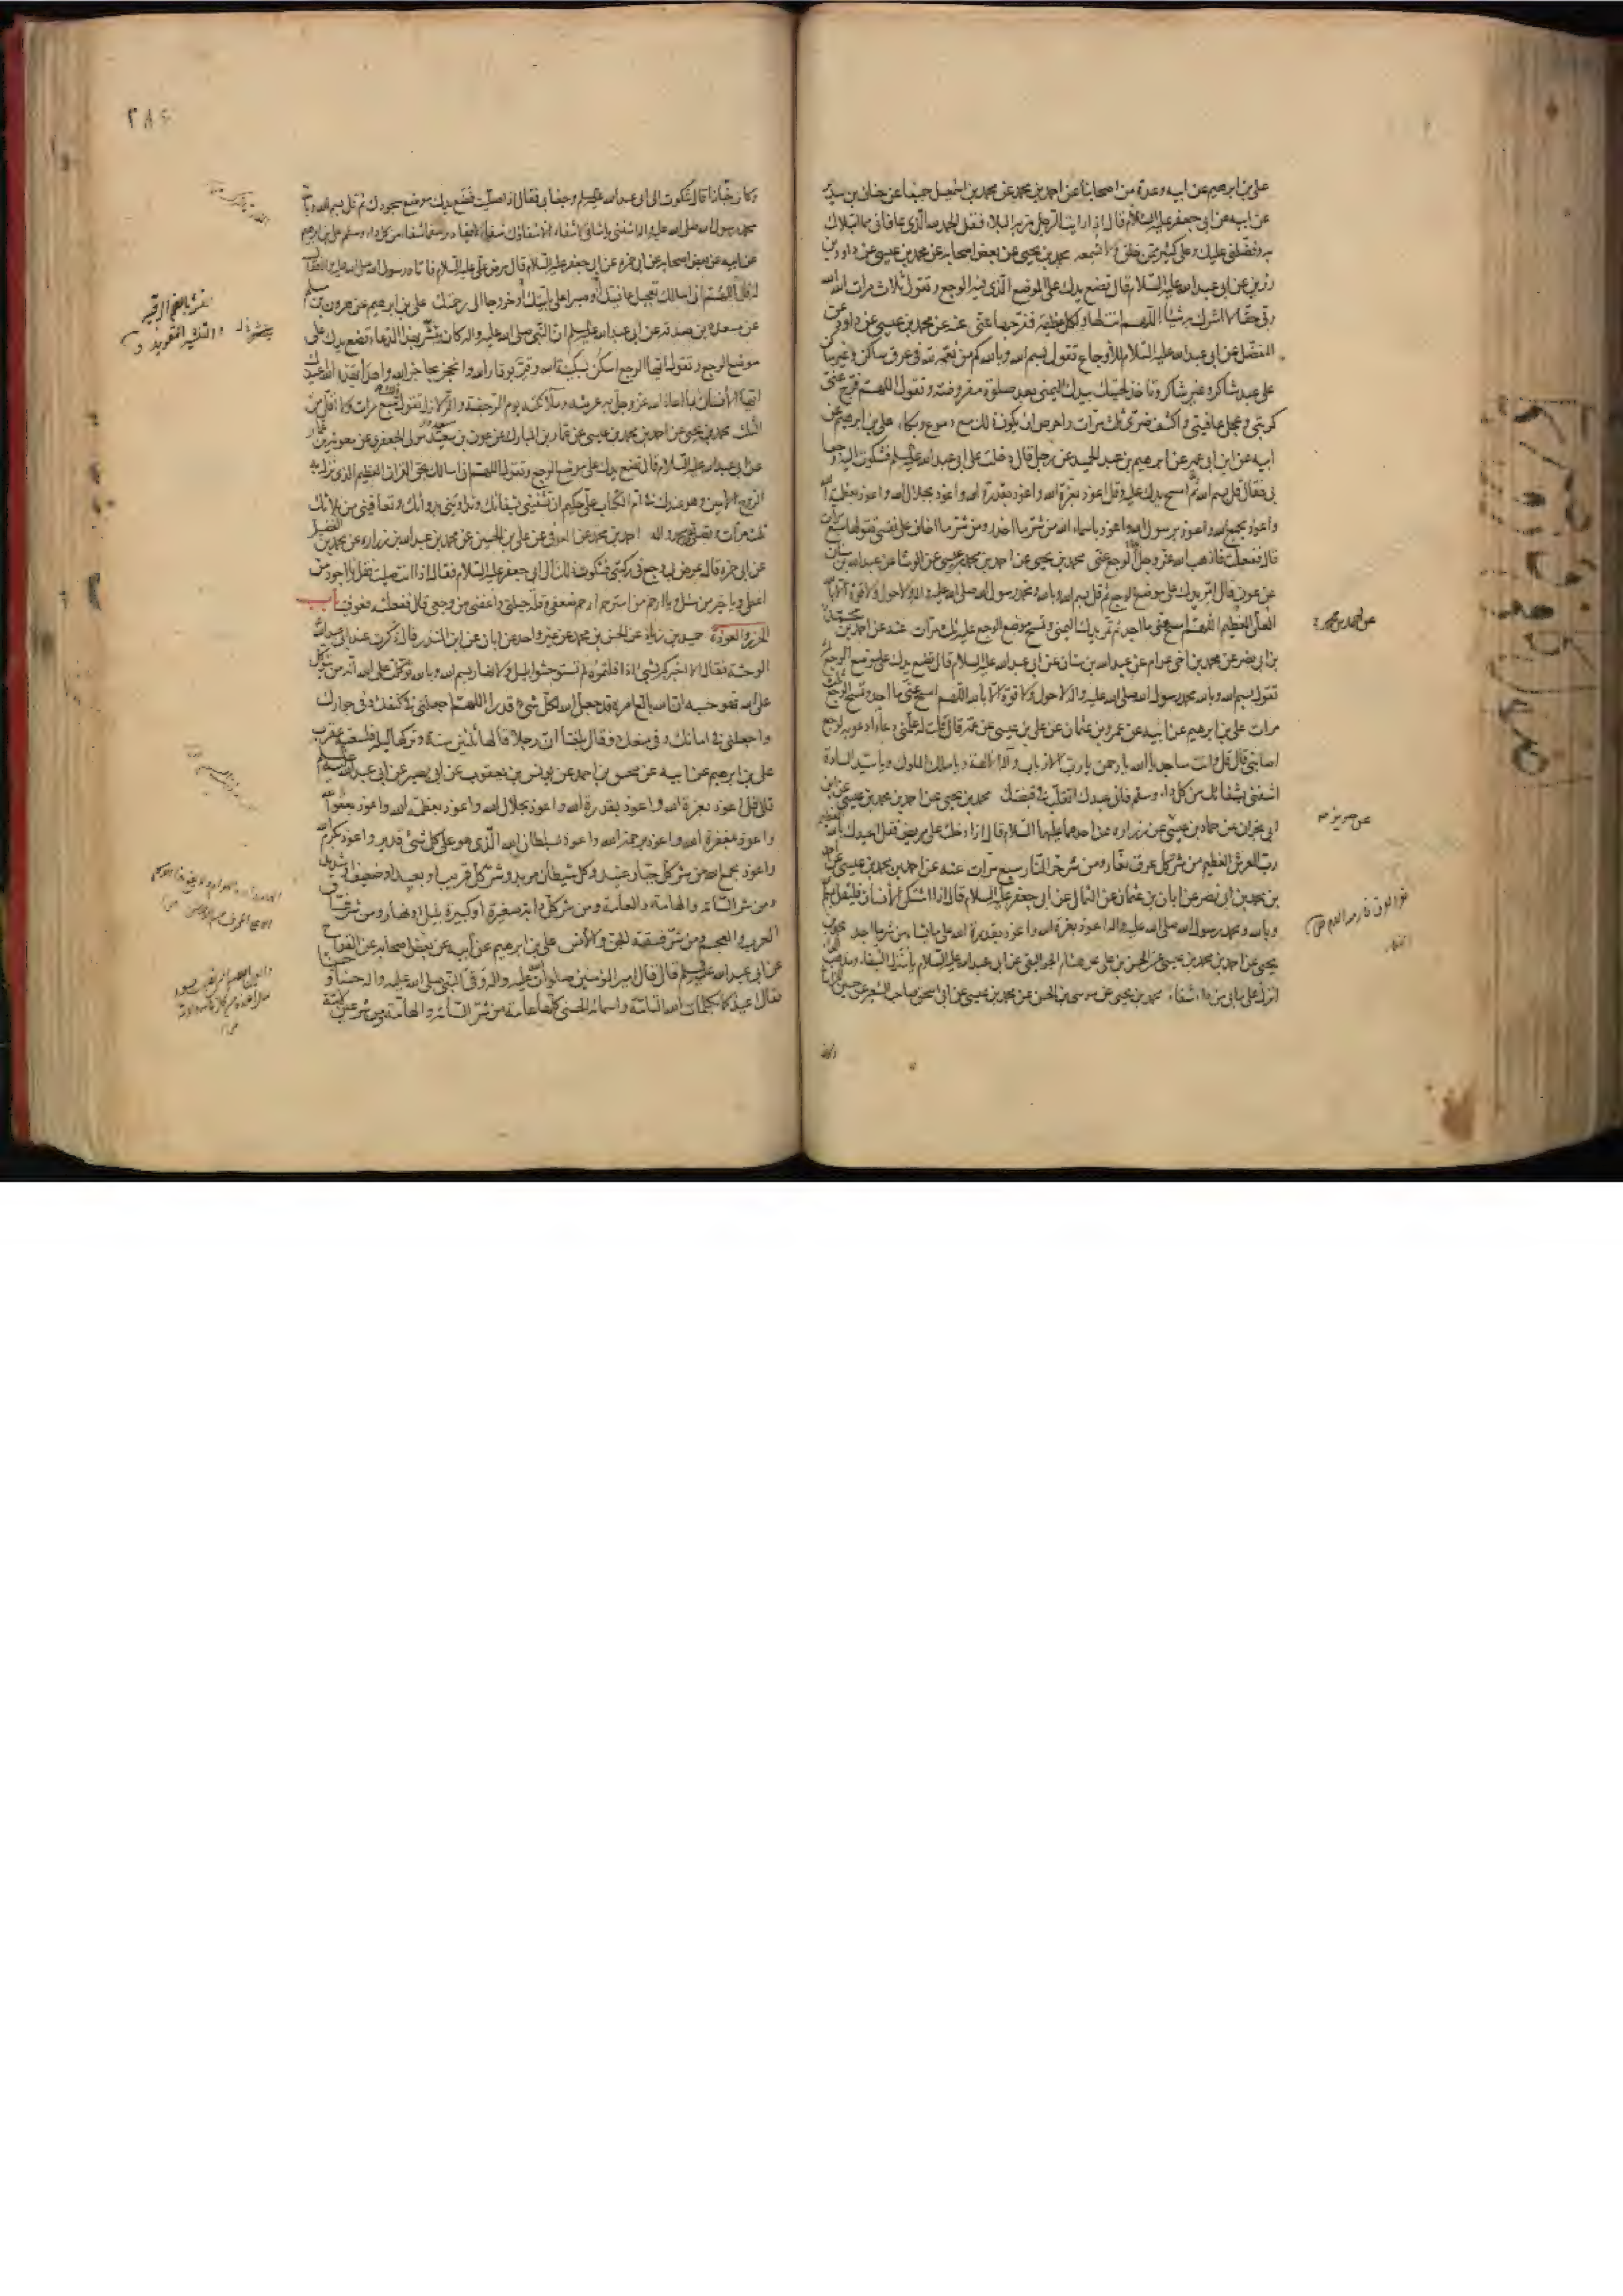 على بن ابرهيم عن ابيه وعدة من اصحابنا عن احمد بن محمد عن محمد بن اسمعيل جميعا عن حنان بن سدير
عن ابيه عن ابى جعفر عليه السلام قال اذا رايت الرجل مر به البلاء فقل الحمد لله الذى عافانى مما ابتلاك
به وفضلنى عليك وعلى كثير ممن خلق ولا تسمعه محمد بن يحيى عن بعض اصحابه عن محمد بن عيسى عن داود بن
رزين عن ابى عبد الله عليه السلام قال تضع يدك على الموضع الذى فيه الوجع وتقول ثلاث مرات الله الله
ربى حقا لا اشرك به شيئا اللهم انت لها ولكل عظيمة ففرجها عنى عنه عن محمد بن عيسى عن داود عن
المفضل عن ابى عبد الله عليه السلام للاوجاع تقول بسم الله وبالله كم من نعمة لله فى عرق ساكن وغير ساكن
على عبد شاكر وغير شاكر وتاخذ لحيتك بيدك اليمنى بعد صلوة مفروضة وتقول اللهم فرج عنى
كربتى وعجل عافيتى واكشف ضرى ثلث مرات واحرص ان يكون ذلك مع دموع وبكاء على بن ابرهيم عن
ابيه عن ابن ابى عمير عن ابرهيم بن عبد الحميد عن رجل قال دخلت على ابى عبد الله عليه السلم فشكوت اليه وجعا
بى فقال قل بسم الله ثم امسح يدك عليه وقل اعوذ بعزة الله واعوذ بقدرة الله واعوذ بجلال الله واعوذ بعظمة الله
واعوذ بجمع الله واعوذ برسول الله واعوذ باسماء الله من شر ما احذر ومن شر ما اخاف على نفسى تقولها سبع مرات
قال ففعلت فاذهب الله عز وجل الوجع عنى محمد بن يحيى عن احمد بن محمد بن عيسى عن الوشا عن عبد الله بن سنان
عن عون قال امر يدك على موضع الوجع ثم قل بسم الله وبالله ومحمد رسول الله صلى الله عليه واله ولا حول ولا قوة الا بالله
العلى العظيم اللهم امسح عنى ما اجد ثم تمر يدك اليمنى وتمسح موضع الوجع عليه ثلث مرات عنه عن احمد بن محمد
بن ابى نصر عن محمد بن اخى عرام عن عبد الله بن سنان عن ابى عبد الله عليه السلام قال تضع يدك على موضع الوجع ثم
تقول بسم الله وبالله محمد رسول الله صلى الله عليه واله لا حول ولا قوة الا بالله اللهم امسح عنى ما اجد وتمسح الوجع ثلث
مرات على بن ابرهيم عن ابيه عن عمرو بن عثمان عن على بن عيسى عن عمه قال قلت له علمنى دعاء ادعو به لوجع
اصابنى قال قل وانت ساجد يا الله يا رحمن يا رب الارباب واله الالهة ويا ملك الملوك ويا سيد السادة
اشفنى بشفائك من كل داء وسقم فانى عبدك اتقلب فى قبضتك محمد بن يحيى عن احمد بن محمد بن عيسى عن ابن
ابى نجران عن حماد بن عيسى عن زراره عن احدهما عليهما السلام قال اذا دخلت على مريض فقل اعيذك بالله العظيم
رب العرش العظيم من شر كل عرق نفار ومن شر حر النار سبع مرات عنه عن احمد بن محمد بن عيسى عن احمد
بن محمد بن ابى نصر عن ابان بن عثمان عن الثمالى عن ابى جعفر عليه السلام قال اذا اشتكى الانسان فليقل بسم الله
وبالله ومحمد رسول الله صلى الله عليه واله اعوذ بعزة الله واعوذ بقدرة الله على ما يشاء من شر ما اجد محمد بن
يحيى عن احمد بن محمد بن عيسى عن الحسن بن على عن هشام الجواليقى عن ابى عبد الله عليه السلام يا منزل الشفاء ومذهب الداء
انزل على ما بى من داء شفاء محمد بن يحيى عن موسى بن الحسن عن محمد بن عيسى عن ابى اسحق صاحب الشعير عن حسين الخراسانى
وكان
عن حريز
٢٨٤
وكان خبازا قال شكوت الى ابى عبد الله عليه السلم وجعا بى فقال اذا صليت فضع يدك موضع سجودك ثم قل بسم الله وبالله
محمد رسول الله صلى الله عليه واله اشفنى يا شافى لا شفاء الا شفاؤك شفاء لا يغادر سقما شفاء من كل داء وسقم على بن ابرهيم
عن ابيه عن بعض اصحابه عن ابى حمزه عن ابى جعفر عليه السلام قال مرض على عليه السلام فاتاه رسول الله صلى الله عليه واله فقال
له قل اللهم انى اسالك تعجيل عافيتك وصبرا على بليتك وخروجا الى رحمتك على بن ابرهيم عن هرون بن مسلم
عن مسعدة بن صدقه عن ابى عبد الله عليه السلم ان النبى صلى الله عليه واله كان ينشر بهذا الدعاء تضع يدك على
موضع الوجع وتقول ايها الوجع اسكن بسكينة الله وقر بوقار الله وانحجز بحاجز الله واهدا بهدء الله اعيذك
ايها الانسان بما اعاذ الله عز وجل به عرشه وملائكته يوم الرجفة والزلازل تقول ذلك سبع مرات ولا اقل من
الثلث محمد بن يحيى عن احمد بن محمد بن عيسى عن عمار بن المبارك عن عون بن سعد مولى الجعفرى عن معويه بن عمار
عن ابى عبد الله عليه السلام قال تضع يدك على موضع الوجع وتقول اللهم انى اسالك بحق القران العظيم الذى نزل به
الروح الامين وهو عندك فى ام الكتاب على حكيم ان تشفينى بشفائك وتداوينى بدوائك وتعافينى من بلائك
ثلث مرات وتصلى على محمد واله احمد بن محمد عن العوفى عن على بن الحسين عن محمد بن عبد الله بن زراره عن محمد بن الفضيل
عن ابى حمزه قال عرض بى وجع فى ركبتى فشكوت ذلك الى ابى جعفر عليه السلام فقال اذا انت صليت فقل يا اجود من
اعطى ويا خير من سئل ويا ارحم من استرحم ارحم ضعفى وقلة حيلتى واعفنى من وجعى قال ففعلته فعوفيت باب
الحرز والعوذة حميد بن زياد عن الحسن بن محمد عن غير واحد عن ابان عن ابن المنذر قال ذكرت عند ابى عبد الله
الوحشة فقال الا اخبركم بشىء اذا قلتموه لم تستوحشوا بليل ولا نهار بسم الله وبالله وتوكلت على الله انه من يتوكل
على الله فهو حسبه ان الله بالغ امره قد جعل الله لكل شىء قدرا اللهم اجعلنى فى كنفك وفى جوارك
واجعلنى فى امانك وفى منعك فقال بلغنا ان رجلا قالها ثلثين سنة وتركها ليلة فلسعته عقرب
على بن ابرهيم عن ابيه عن محسن بن احمد عن يونس بن يعقوب عن ابى بصير عن ابى عبد الله عليه السلم
قال قل اعوذ بعزة الله واعوذ بقدرة الله واعوذ بجلال الله واعوذ بعظمة الله واعوذ بعفو الله
واعوذ بمغفرة الله واعوذ برحمة الله واعوذ بسلطان الله الذى هو على كل شىء قدير واعوذ بكرم الله
واعوذ بجمع الله من شر كل جبار عنيد وكل شيطان مريد وشر كل قريب او بعيد او ضعيف او شديد
ومن شر السامة والهامة والعامة ومن شر كل دابة صغيرة او كبيرة بليل او نهار ومن شر فساق
العرب والعجم ومن شر فسقة الجن والانس على بن ابرهيم عن ابيه عن بعض اصحابه عن القداح
عن ابى عبد الله عليه السلم قال قال امير المؤمنين صلوات الله عليه رقى النبى صلى الله عليه واله حسنا وحسينا
فقال اعيذكما بكلمات الله التامة واسمائه الحسنى كلها عامة من شر السامة والهامة ومن شر عين